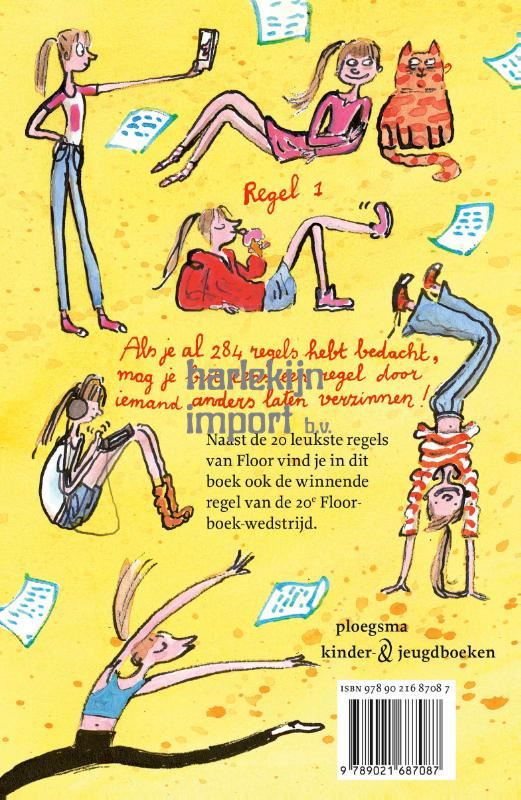 Regel 1
Als je al 284 regels hebt bedacht,
mag je best eens een regel door
iemand anders laten verzinnen!
harlekijn
import b.v.
Naast de 20 leukste regels
van Floor vind je in dit
boek ook de winnende
regel van de 20e Floor-
boek-wedstrijd.
ploegsma
kinder- & jeugdboeken
ISBN 978 90 216 8708 7
9 789021 687087